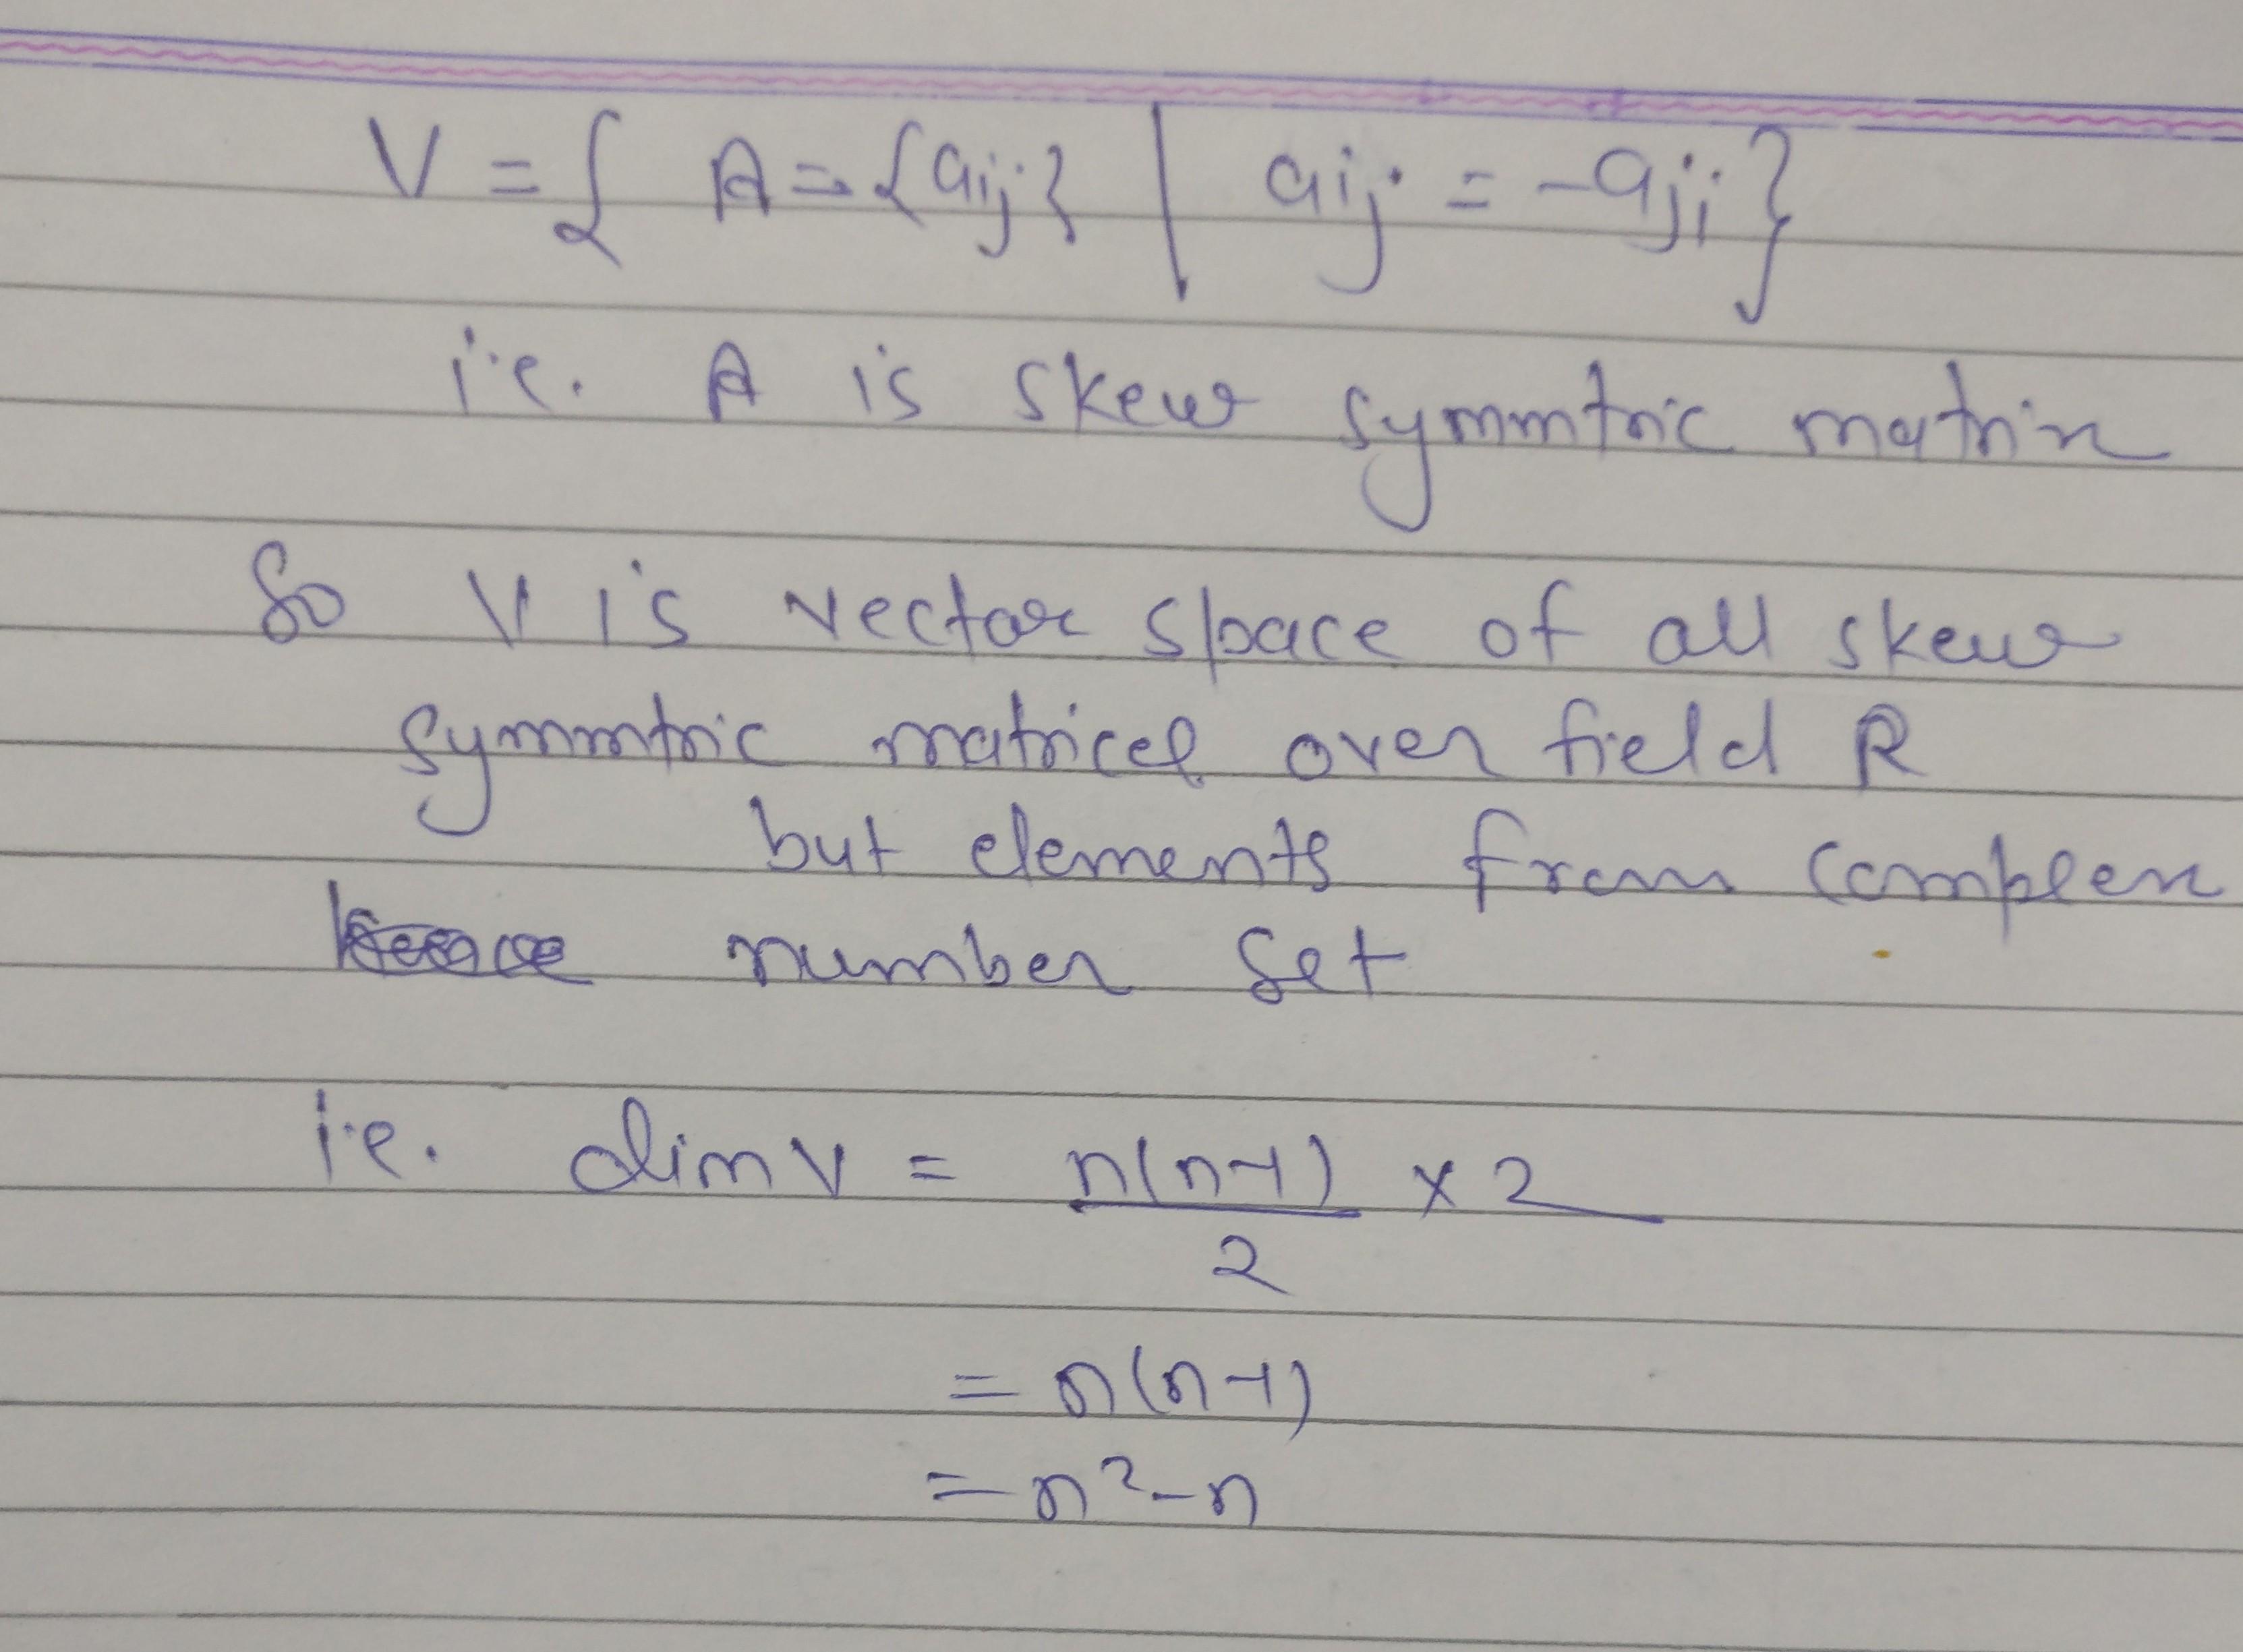 V = { A = {aij} | aij = -aji }
i.e. A is skew symmtric matrix
So V is vector space of all skew
symmtric matrices over field R
but elements from complex
number set
i.e. dim V = n(n-1)/2 × 2
= n(n-1)
= n²-n